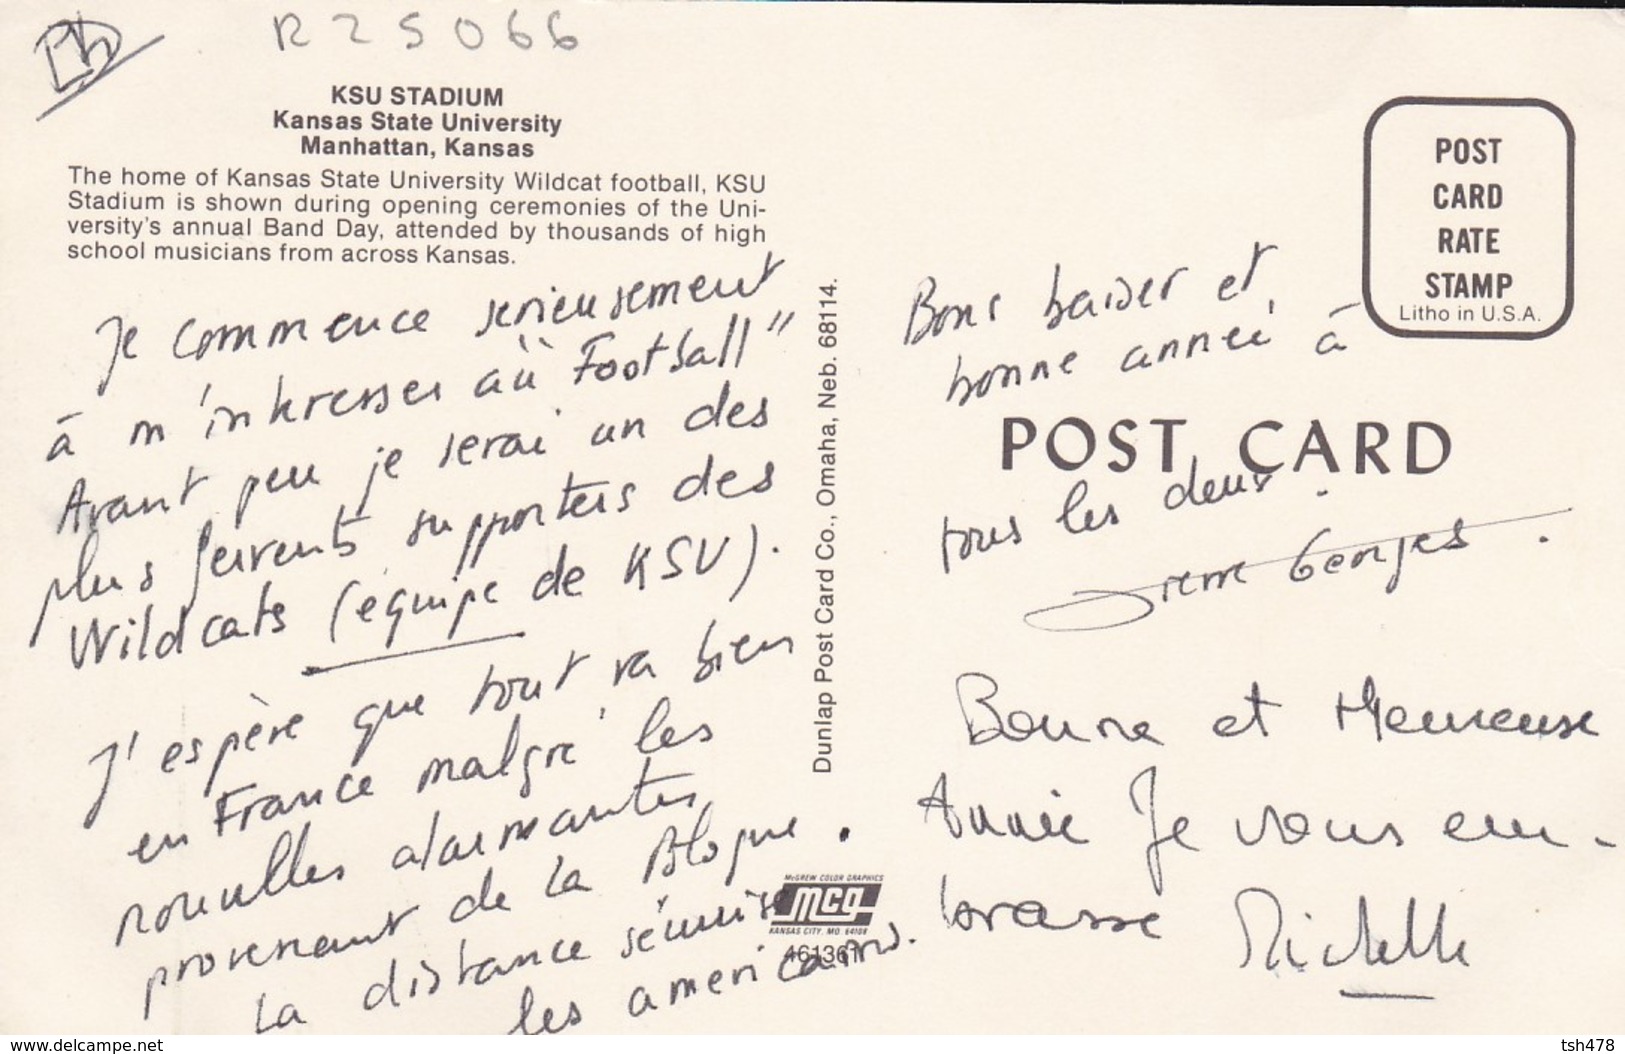 R25066
KSU STADIUM
Kansas State University
Manhattan, Kansas
The home of Kansas State University Wildcat football, KSU
Stadium is shown during opening ceremonies of the Uni-
versity's annual Band Day, attended by thousands of high
school musicians from across Kansas.
Je commence serieusement
à m'interesser au "Football"
Avant peu je serai un des
plus fervents supporters des
Wildcats (équipe de KSU).
J'espère que tout va bien
en France malgré les
nouvelles alarmantes
provenant de la
la distance sécurise
les americains.
Dunlap Post Card Co., Omaha, Neb. 68114.
McGREW COLOR GRAPHICS
mcg
KANSAS CITY, MO 64108
461367
POST
CARD
RATE
STAMP
Litho in U.S.A.
Bons baiser et
bonne année à
POST CARD
tous les deux.
Pierre Georges.
Bonne et Heureuse
Année Je vous em-
brasse Michelle
www.delcampe.net
tsh478